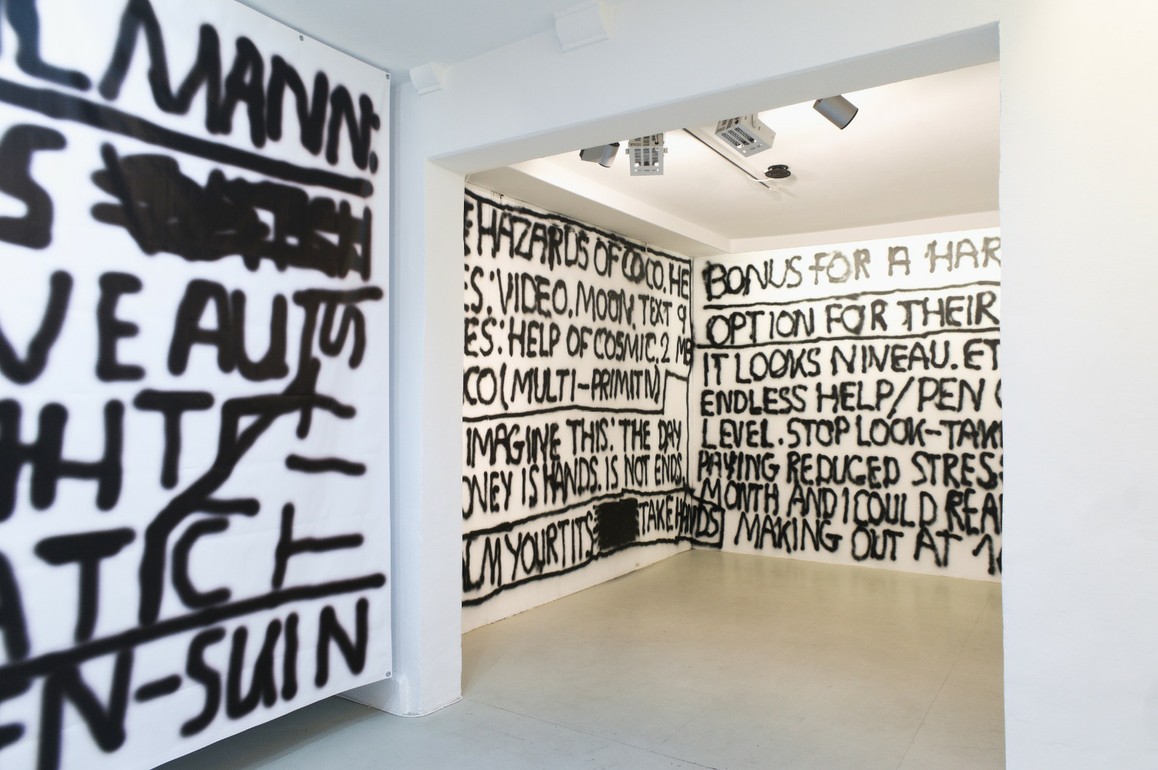 MANN:
S
VE AU
HT
AT
EN-SUIN
HAZARDS OF COCO. HE
ES: VIDEO. MOON. TEXT 9
ES: HELP OF COSMIC. 2 MB
CO (MULTI-PRIMITIV)
IMAGINE THIS: THE DAY
ONEY IS HANDS. IS NOT ENDS.
LM YOUR TITS TAKE HANDS
BONUS FOR A HAR
OPTION FOR THEIR
IT LOOKS NIVEAU. ET
ENDLESS HELP/PEN
LEVEL. STOP LOOK-TAK
PAYING REDUCED STRESS
MONTH AND I COULD REA
MAKING OUT AT